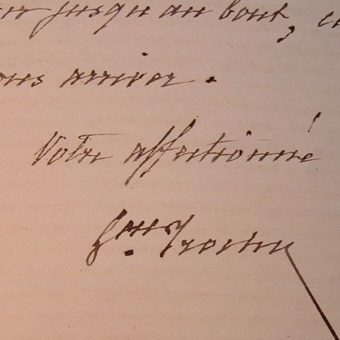 jusqu'au bout,
ous arriver.
Votre affectionné